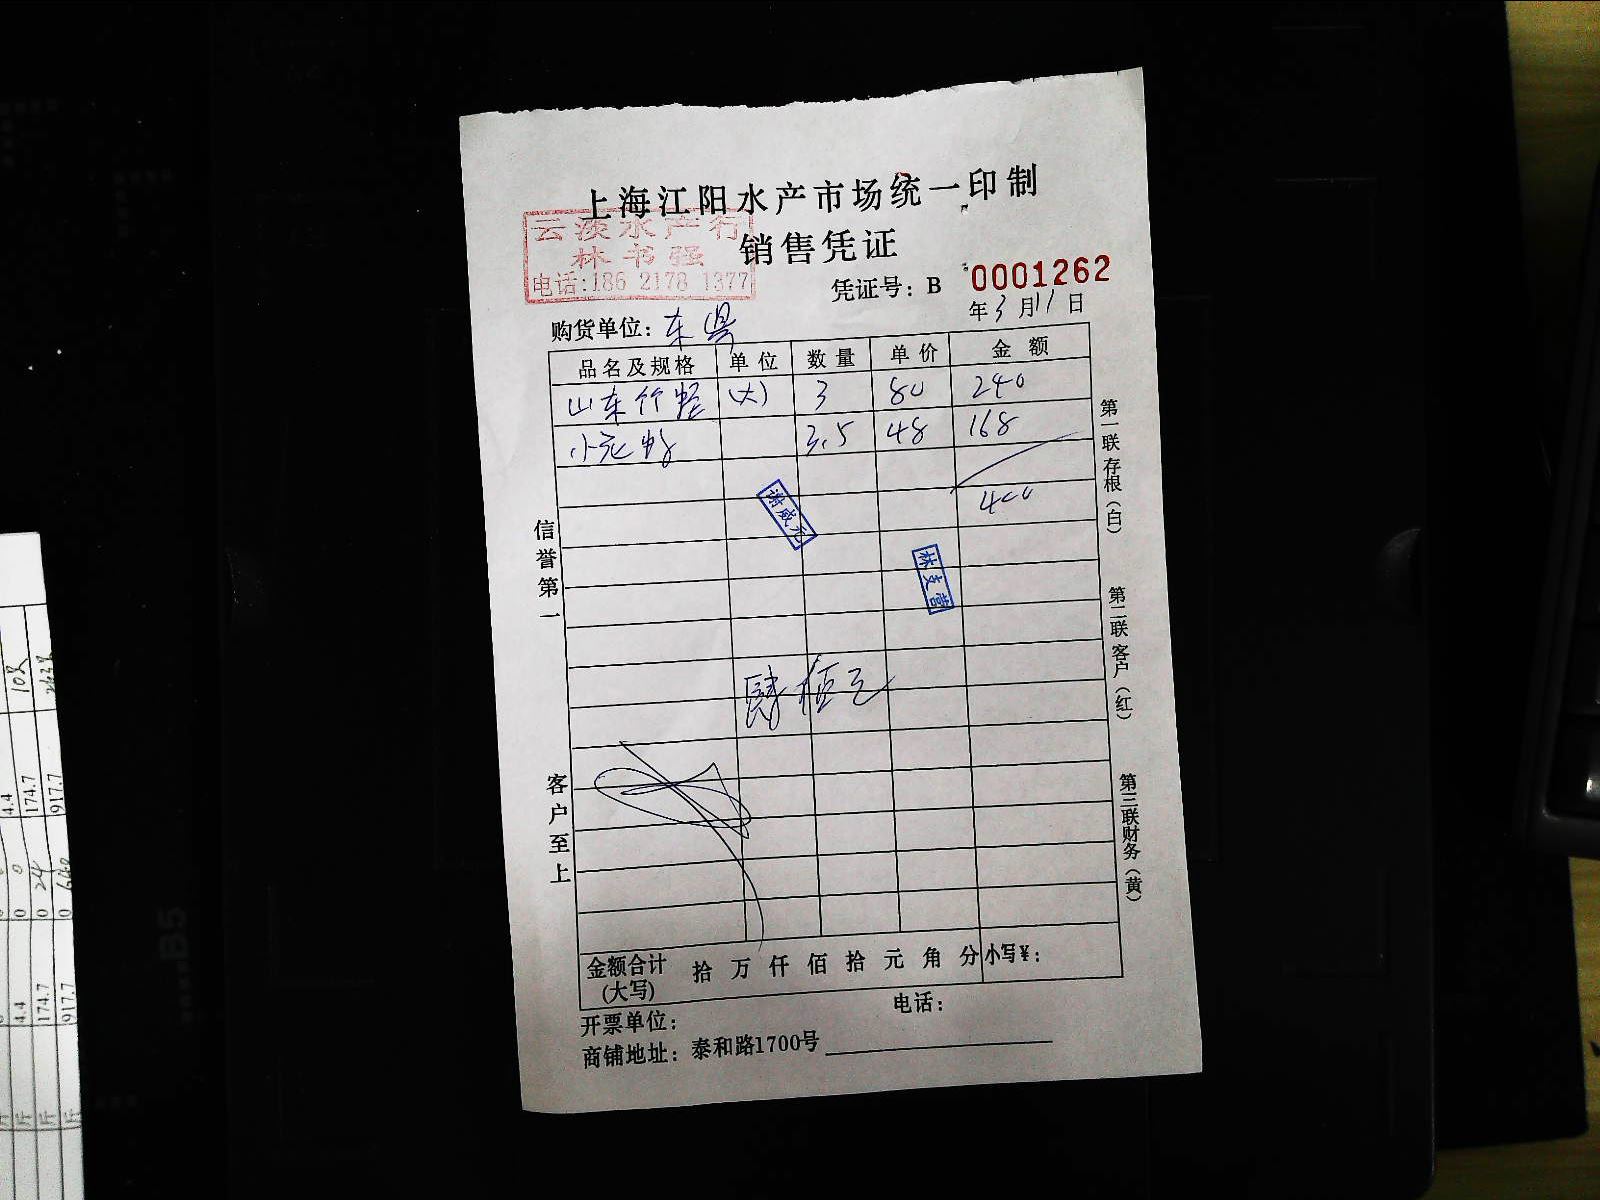 上海江阳水产市场统一印制
云淡水产行
林书强
电话:186 2178 1377
销售凭证
凭证号: B 0001262
年 3 月 11 日
购货单位:
品名及规格 单位 数量 单价 金额
山东竹蛏 (大) 3 80 240
小花蛤 3.5 48 168
400
谢威元
林支营
肆佰元
信誉第一
客户至上
第一联存根(白)
第二联客户(红)
第三联财务(黄)
金额合计(大写) 拾 万 仟 佰 拾 元 角 分 小写¥:
开票单位: 电话:
商铺地址: 泰和路1700号
10只
4.4
174.7
917.7
0
0 24
0 660
4.4
174.7
917.7
斤
斤
斤
B5